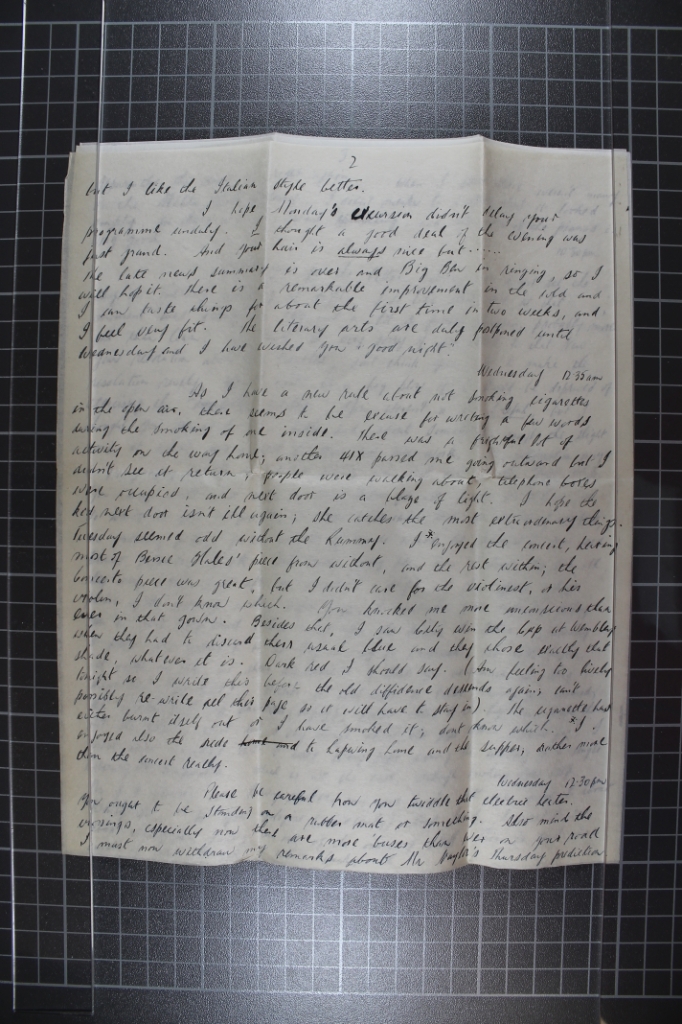 2
but I like the Italian style better.
I hope Monday's excursion didn't delay your
programme unduly. I thought a good deal of the evening was
just grand. And your hair is always nice but.....
the late news summary is over and Big Ben is ringing, so I
will hop it. There is a remarkable improvement in the cold and
I can taste things for about the first time in two weeks, and
I feel very fit. The literary arts are duly postponed until
Wednesday and I have wished you "good night"
Wednesday 12.35am
As I have a new rule about not smoking cigarettes
in the open air, there seems to be excuse for writing a few words
during the smoking of one inside. There was a frightful lot of
activity on the way home; another 41X passed me going outward but I
didn't see it return; people were walking about, telephone boxes
were occupied, and next door is a blaze of light. I hope the
next door isn't ill again; she catches the most extraordinary things.
Tuesday seemed odd without the I * enjoyed the concert, hearing
most of piece from without, and the rest within; the
concerto piece was great, but I didn't care for the violinist, or his
violin, I don't know which. You knocked me more unconscious than
ever in that gown. Besides that, I saw win the Cup at Wembley
when they had to discard their usual blue and they chose exactly that
shade, whatever it is. Dark red I should say. (Am feeling too lively
tonight so I write this before the old diffidence descends again; can't
possibly re-write all this page so it will have to stay in) The cigarette has
either burnt itself out or I have smoked it; don't know which. * I
enjoyed also the ride home and to home and the supper, rather more
than the concert really.
Wednesday 12.30pm
Please be careful how you twiddle that electric
You ought to be standing on a rubber mat or something. Also mind the
crossings, especially now there are more buses than ever on your road
I must now withdraw my remarks about Mr Naylor's Thursday prediction